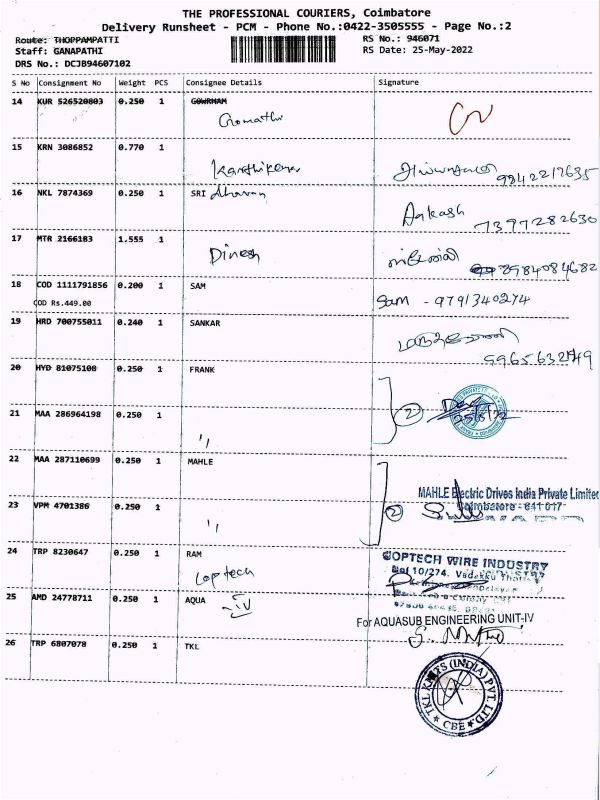 THE PROFESSIONAL COURIERS, Coimbatore
Delivery Runsheet - PCM - Phone No.:0422-3505555 - Page No.:2
Route: THOPPAMPATTI RS No.: 946071
Staff: GANAPATHI RS Date: 25-May-2022
DRS No.: DCJB94607102
S No Consignment No Weight PCS Consignee Details Signature
14 KUR 526520803 0.250 1 GOWRMAM
Gomathi
15 KRN 3086852 0.770 1
Karthikeya 9942217635
16 NKL 7874369 0.250 1 SRI dharan
Aakash 7397282630
17 MTR 2166183 1.555 1
Dinesh 8984084682
18 COD 1111791856 0.200 1 SAM
COD Rs.449.00 Sam - 9791340274
19 HRD 700755011 0.240 1 SANKAR
20 HYD 81075100 0.250 1 FRANK
2
21 MAA 286964198 0.250 1 "
22 MAA 287110699 0.250 1 MAHLE
MAHLE Electric Drives India Private Limited
Coimbatore - 641 017
23 VPM 4701386 0.250 1 " 2
24 TRP 8230647 0.250 1 RAM
Coptech
COPTECH WIRE INDUSTRY
No! 10/274, Vadakku Thottam
25 AMD 24778711 0.250 1 AQUA - IV
For AQUASUB ENGINEERING UNIT-IV
26 TRP 6807078 0.250 1 TKL
TKL KNITS (INDIA) PVT. LTD.
CBE